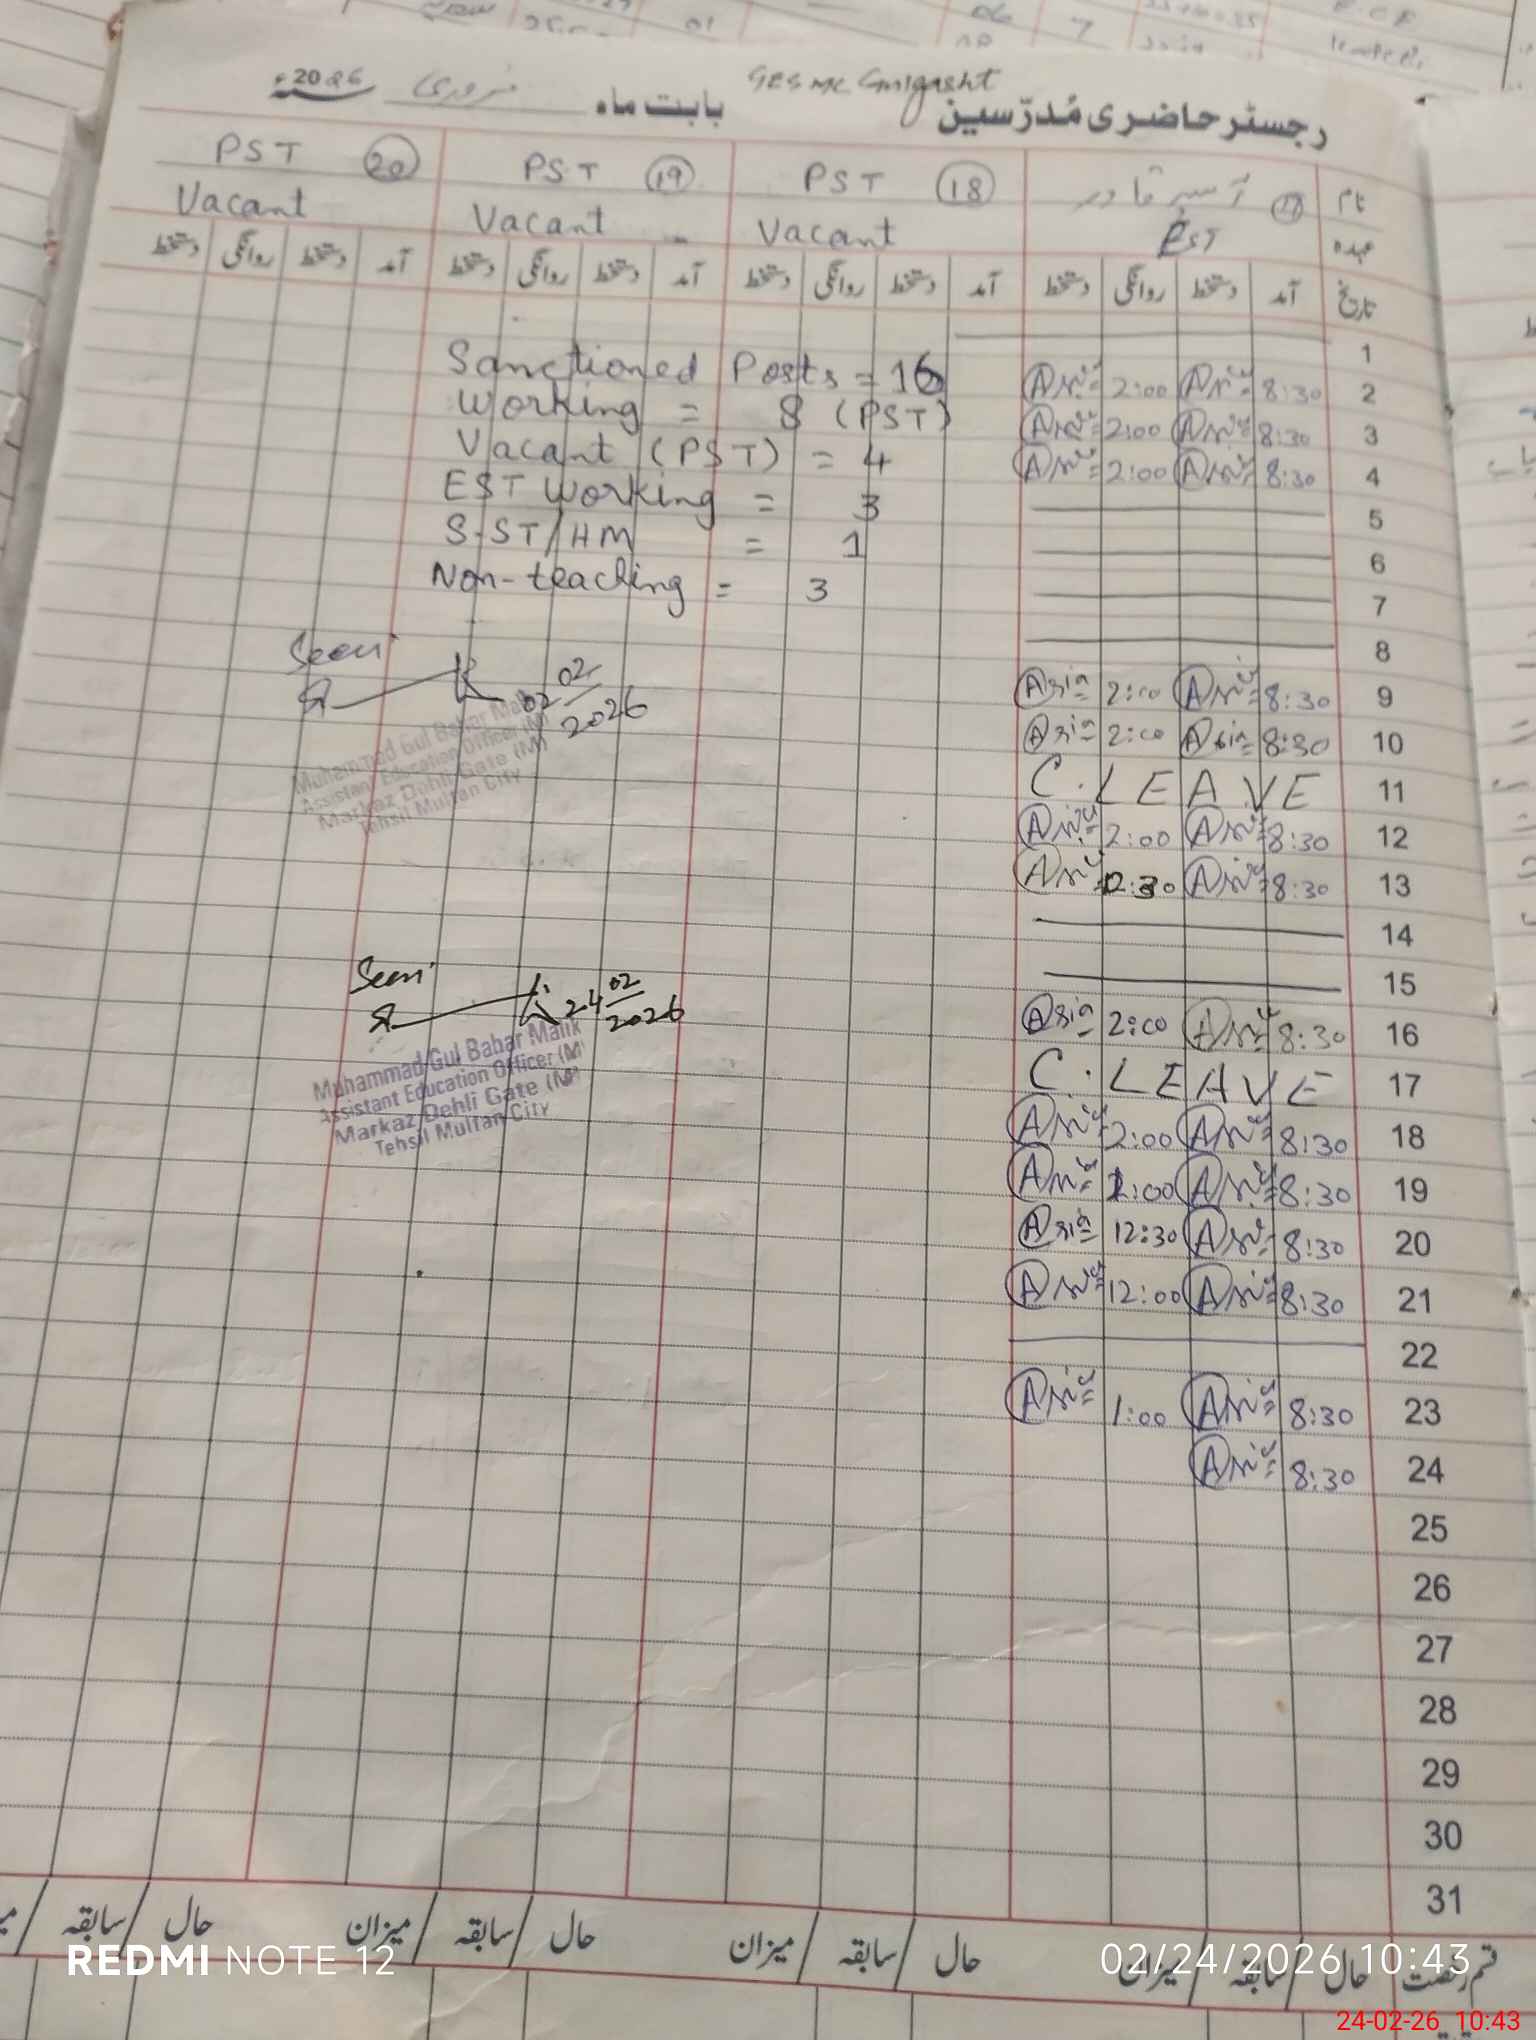 GES MC Gulgasht
رجسٹر حاضری مُدرّسین بابت ماہ فروری 2026ء
نام 17 آسیہ قادر PST 18 PST 19 PST 20
عہدہ EST Vacant Vacant Vacant
تاریخ آمد دستخط روانگی دستخط آمد دستخط روانگی دستخط آمد دستخط روانگی دستخط آمد دستخط روانگی دستخط
1
Sanctioned Posts = 16
2 8:30 2:00
Working = 8 (PST)
3 8:30 2:00
Vacant (PST) = 4
4 8:30 2:00
EST Working = 3
5
S-ST/HM = 1
6
Non-teaching = 3
7
8
Seen
02/02/2026
9 8:30 2:00 Asia
Muhammad Gul Babar Malik
Assistant Education Officer (M)
Markaz Dehli Gate (M)
Tehsil Multan City
10 8:30 Asia 2:00 Asia
11 C. LEAVE
12 8:30 2:00
13 8:30 12:30
14
15
Seen
24/02/2026
Muhammad Gul Babar Malik
Assistant Education Officer (M)
Markaz Dehli Gate (M)
Tehsil Multan City
16 8:30 2:00 Asia
17 C. LEAVE
18 8:30 2:00
19 8:30 2:00
20 8:30 12:30 Asia
21 8:30 12:00
22
23 8:30 1:00
24 8:30
25
26
27
28
29
30
31
قسم رخصت حال سابقہ میزان حال سابقہ میزان حال سابقہ میزان حال سابقہ
REDMI NOTE 12
02/24/2026 10:43
24-02-26 10:43